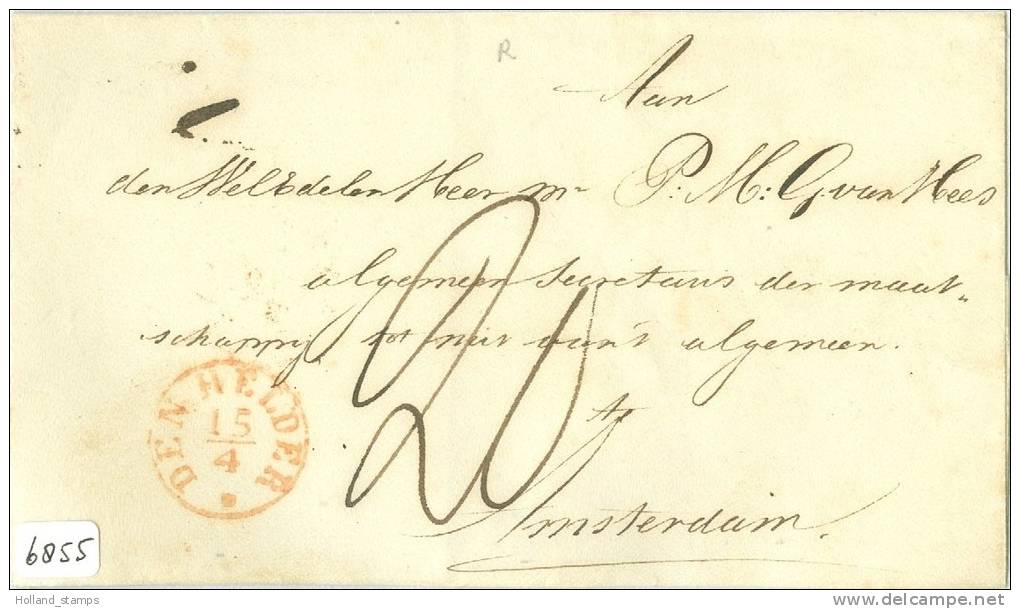 R
Aan
den WelEdelen Heer mr P: M: G. van Hees
algemeen Secretaris der maat„
schappij tot nut van't algemeen.
te
Amsterdam.
20
DEN HELDER
15
4
6855
Holland_stamps
www.delcampe.net